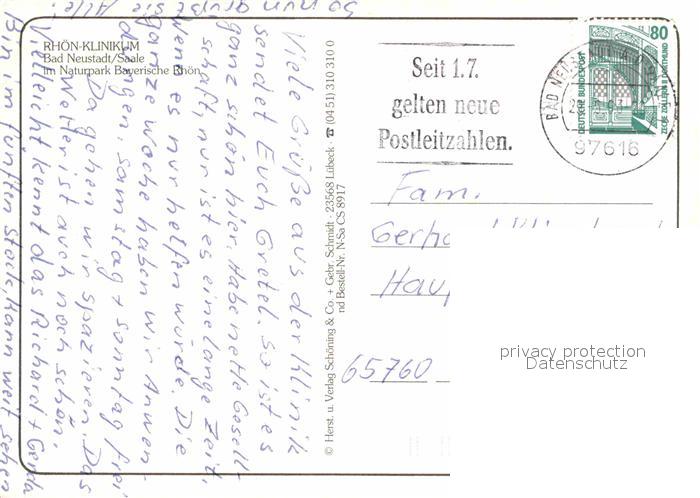 RHÖN-KLINIKUM
Bad Neustadt/Saale
im Naturpark Bayerische Rhön
Viele Grüße aus der Klinik
sendet Euch Gretel. So ist es
ganz schön hier. Habe nette Gesell-
schaft, nur ist es eine lange Zeit,
wenn es nur helfen würde. Die
ganze Woche haben wir Anwen-
dungen, samstag + sonntag frei
Da gehen wir spazieren. Das
Wetter ist auch noch schön.
Vielleicht kennt das Richard + Gerda
Bin im fünften Stock, kann weit sehen
So nun grüßt sie Alle!
© Herst. u. Verlag Schöning & Co. + Gebr. Schmidt · 23568 Lübeck · ☎ (04 51) 310 310 0
nd Bestell-Nr. N-Sa CS 8917
Seit 1.7.
gelten neue
Postleitzahlen.
BAD NEU
97616
80
DEUTSCHE BUNDESPOST
ZECHE ZOLLERN II DORTMUND
Fam.
Gerha
Haup
65760
privacy protection
Datenschutz